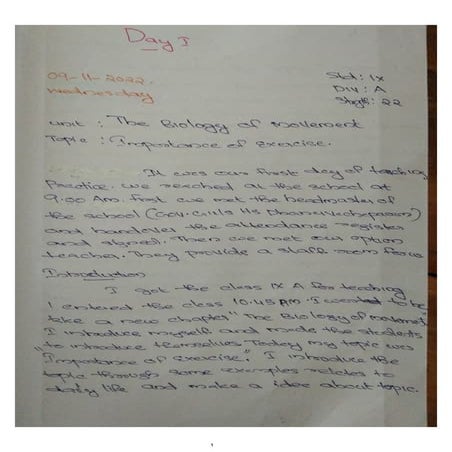 Day I
09-11-2022.
Wednesday
Std: IX
Div: A
Stgth: 22
Unit : The Biology of movement
Topic : Importance of exercise.
It was our first day of teaching
Practice. We reached at the school at
9.00 Am. First we met the headmaster of
the school (Gov. Girls Hs
and handover the attendance register
and signed. Then we met our option
teacher. They provide a staff room for us
Introduction
I got the class IX A for teaching
I entered the class 10.45 AM. I wanted to be
take a new chapter "The Biology of movement
I introduce myself and made the students
to introduce themselves. Today my topic was
"Importance of exercise". I introduce the
topic through some examples relates to
daily life and make a idea about topic.